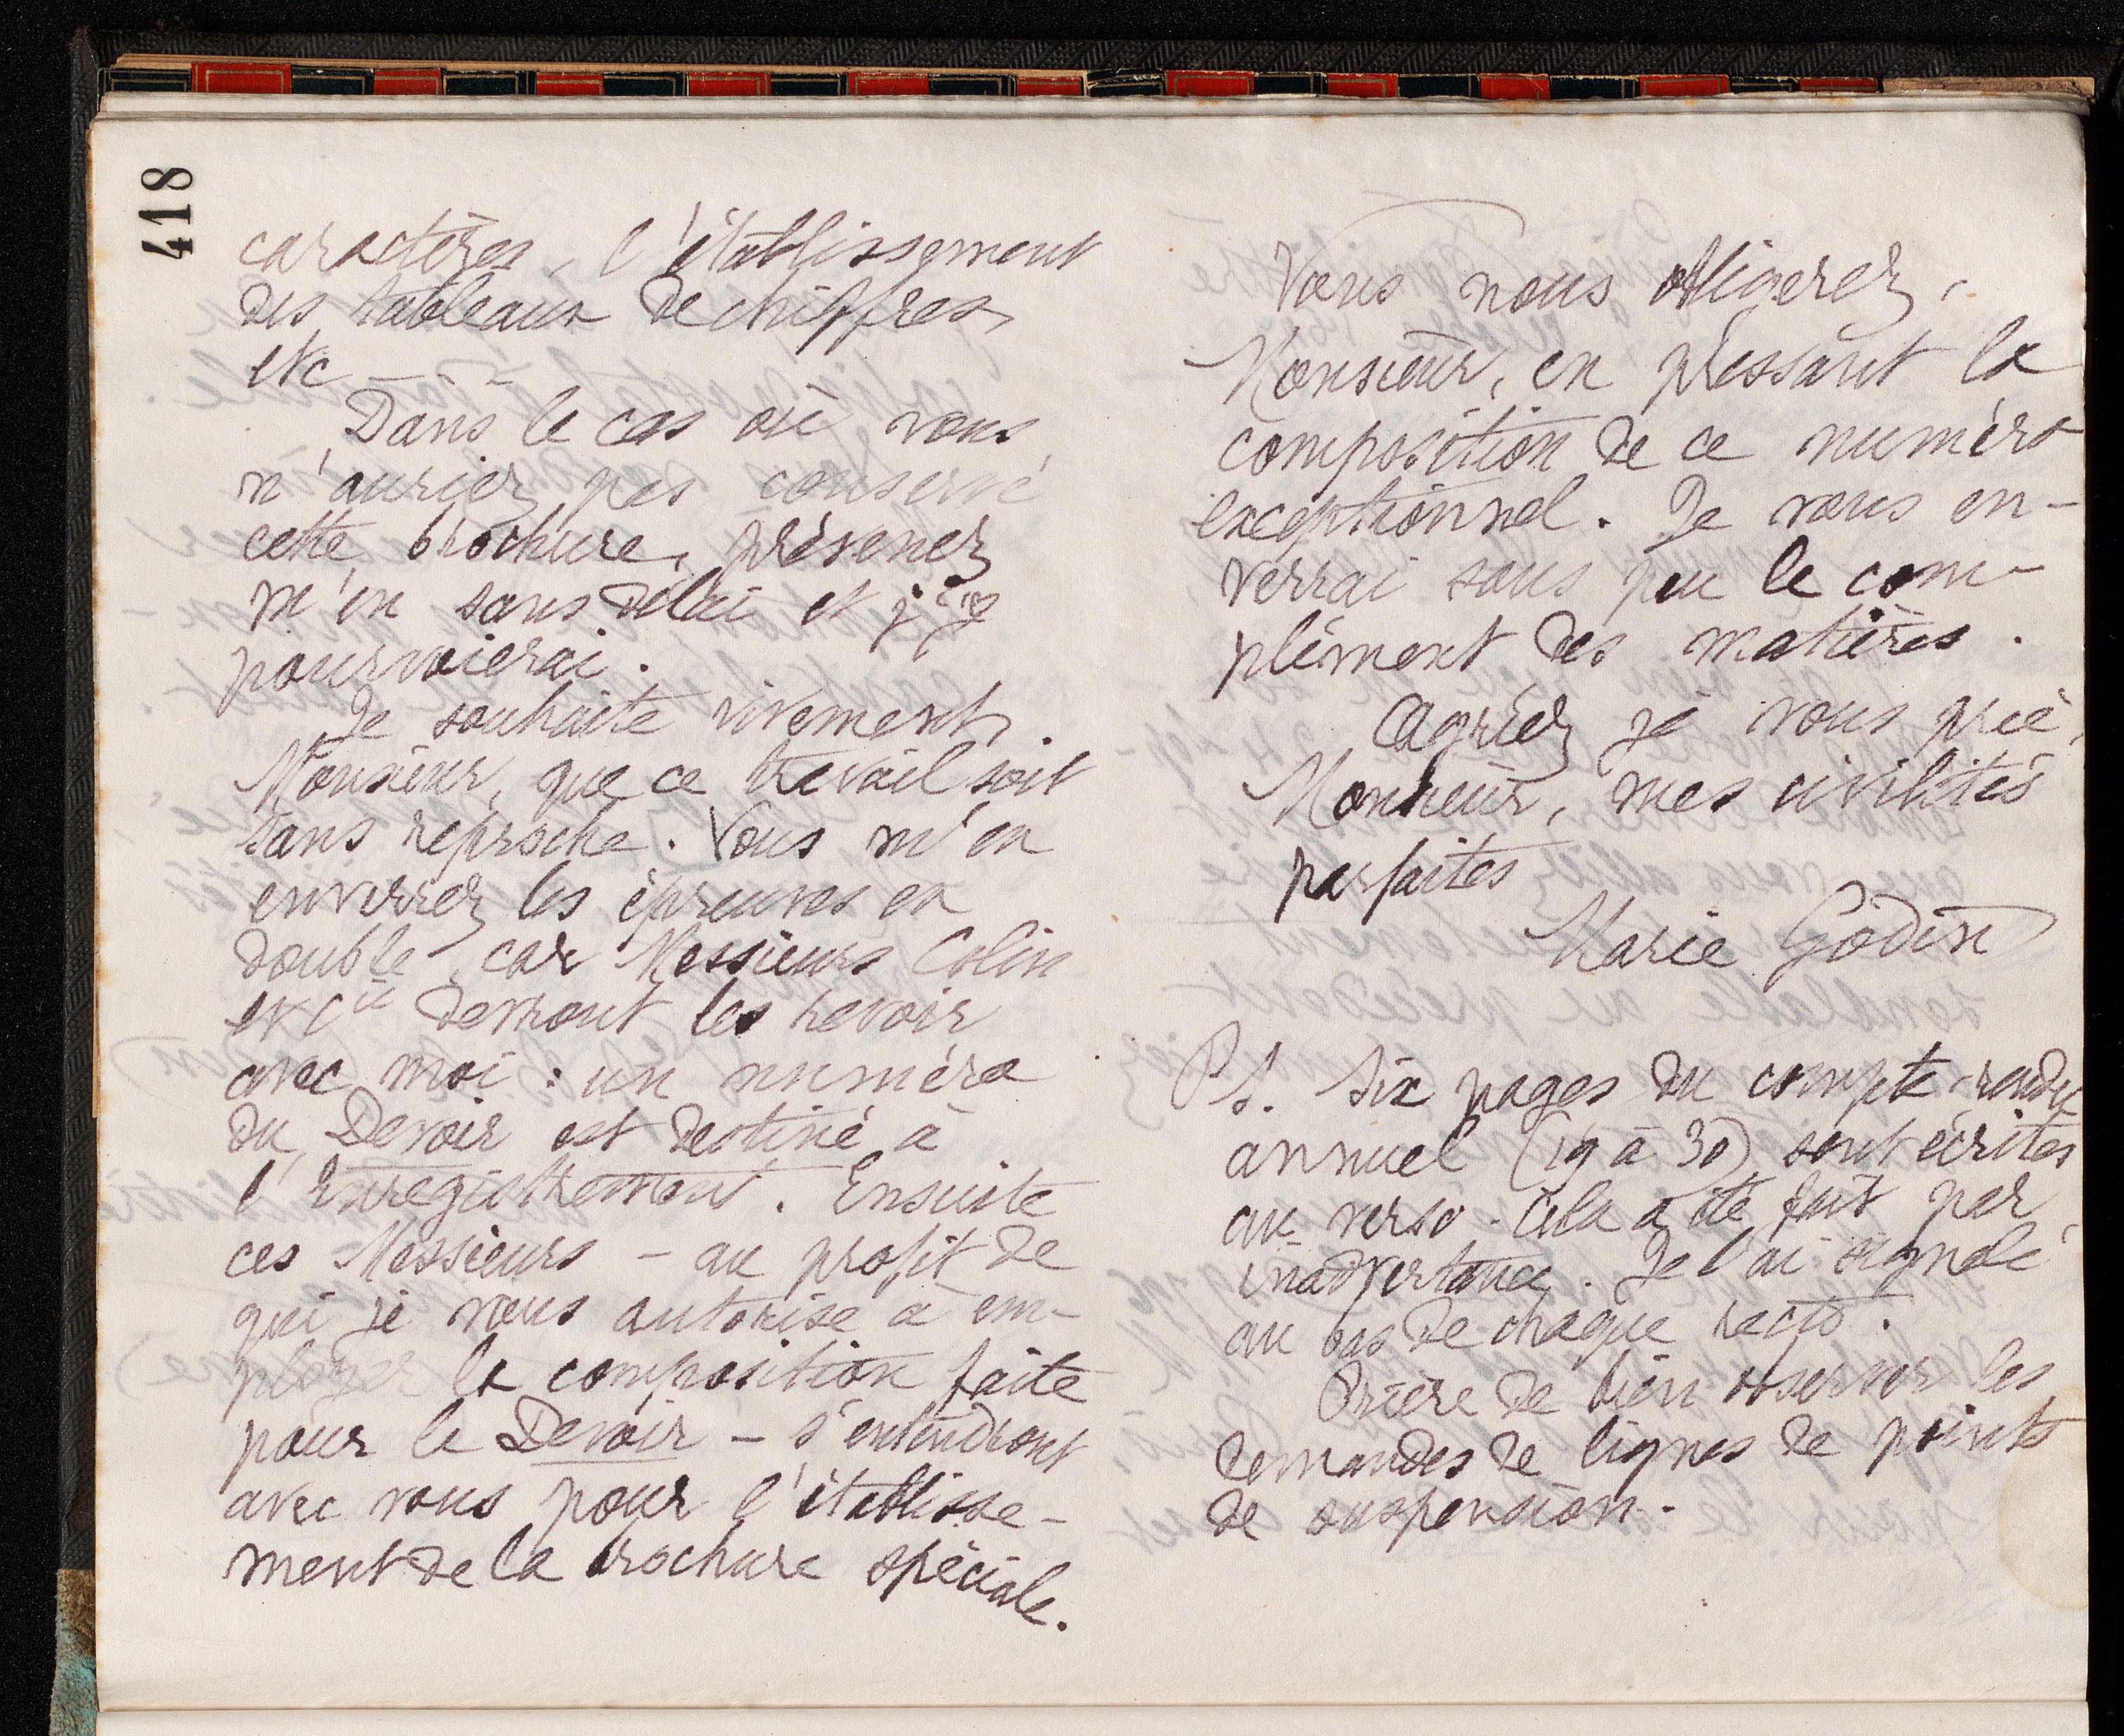 418
caractères, l'établissement
des tableaux de chiffres
etc - - -
Dans le cas où vous
n'auriez pas conservé
cette brochure, prévenez
m'en sans délai et j'y
pourvoierai.
Je souhaite vivement,
Monsieur, que ce travail soit
sans reproche. Vous m'en
enverrez les épreuves en
double, car Messieurs Colin
et Cie devront les revoir
avec moi : un numéro
du Devoir est destiné à
l'Enregistrement. Ensuite
ces Messieurs - au profit de
qui je vous autorise à em-
ployer la composition faite
pour le Devoir - s'entendront
avec vous pour l'établisse-
ment de la brochure spéciale.
Vous nous obligerez,
Monsieur, en pressant la
composition de ce numéro
exceptionnel. Je vous en-
verrai sous peu le com-
plément des matières.
Agréez je vous prie,
Monsieur, mes civilités
parfaites
Marie Godin
Ps. Six pages du compte-rendu
annuel (19 à 30) sont écrites
au verso. Cela a été fait par
inadvertance. Je l'ai signalé
au bas de chaque recto.
Prière de bien observer les
demandes de lignes de points
de suspension.